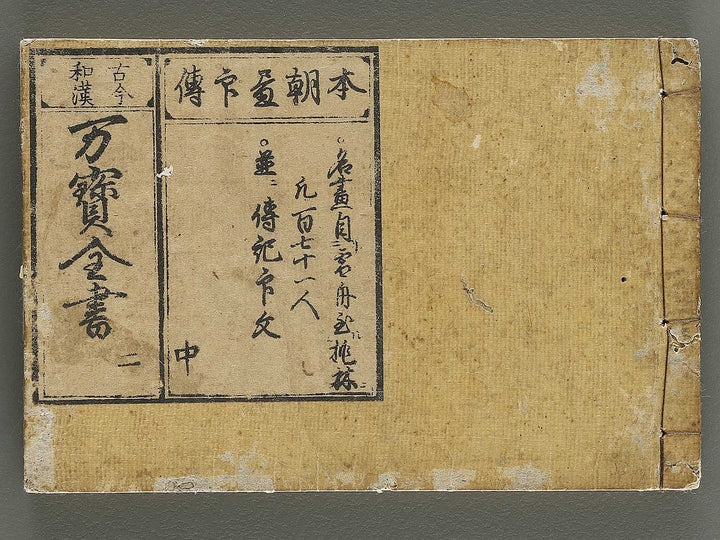 本朝畫印傳
名畫自雪舟至桃林
凡百七十一人
並ニ傳記印文
中
古今
和漢
万寳全書
二